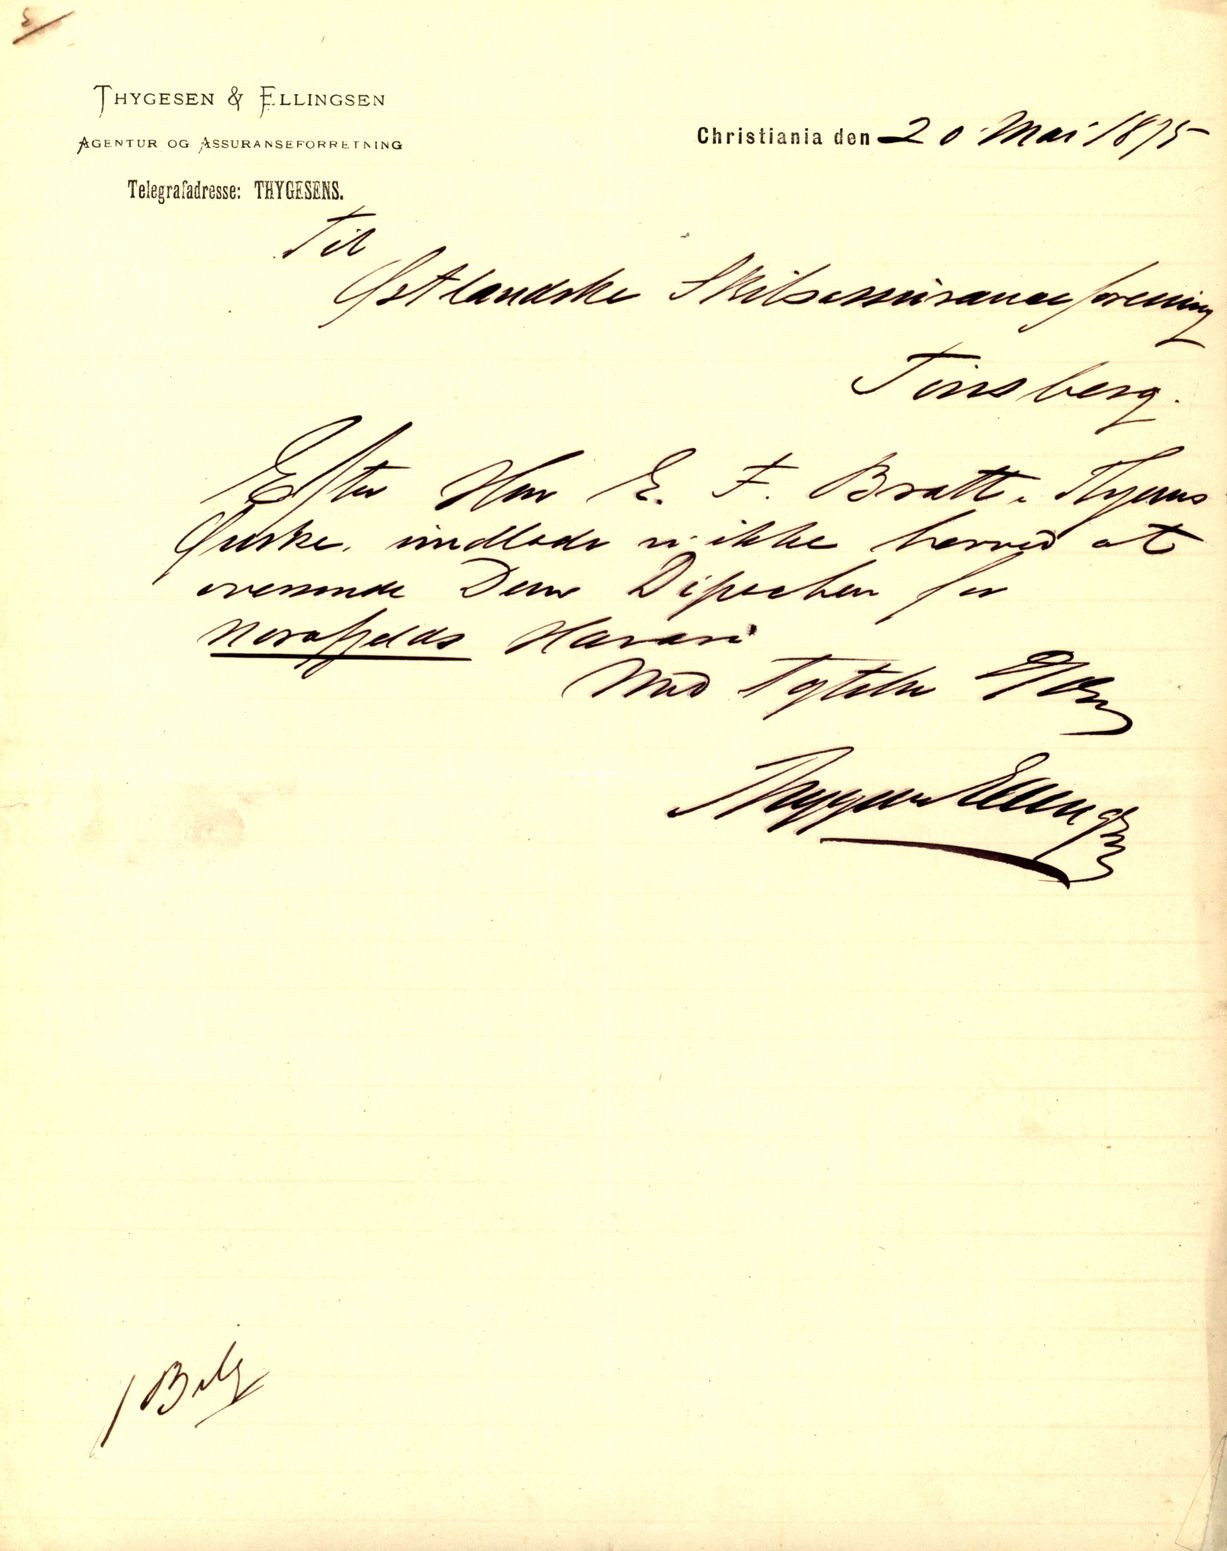 THYGESEN & ELLINGSEN
AGENTUR OG ASSURANSEFORRETNING
Telegrafadresse: THYGESENS.
Christiania den 20 Mai 1895
Til
Østlandske Skibsassuranceforening
Tönsberg.
Efter Herr E. F. Bratt
Önske, undlade vi ikke herved at
oversende Dem Dispachen for
Norafjelds Havari
Med Agtelse
Thygesen & Ellingsen
1 Bilg